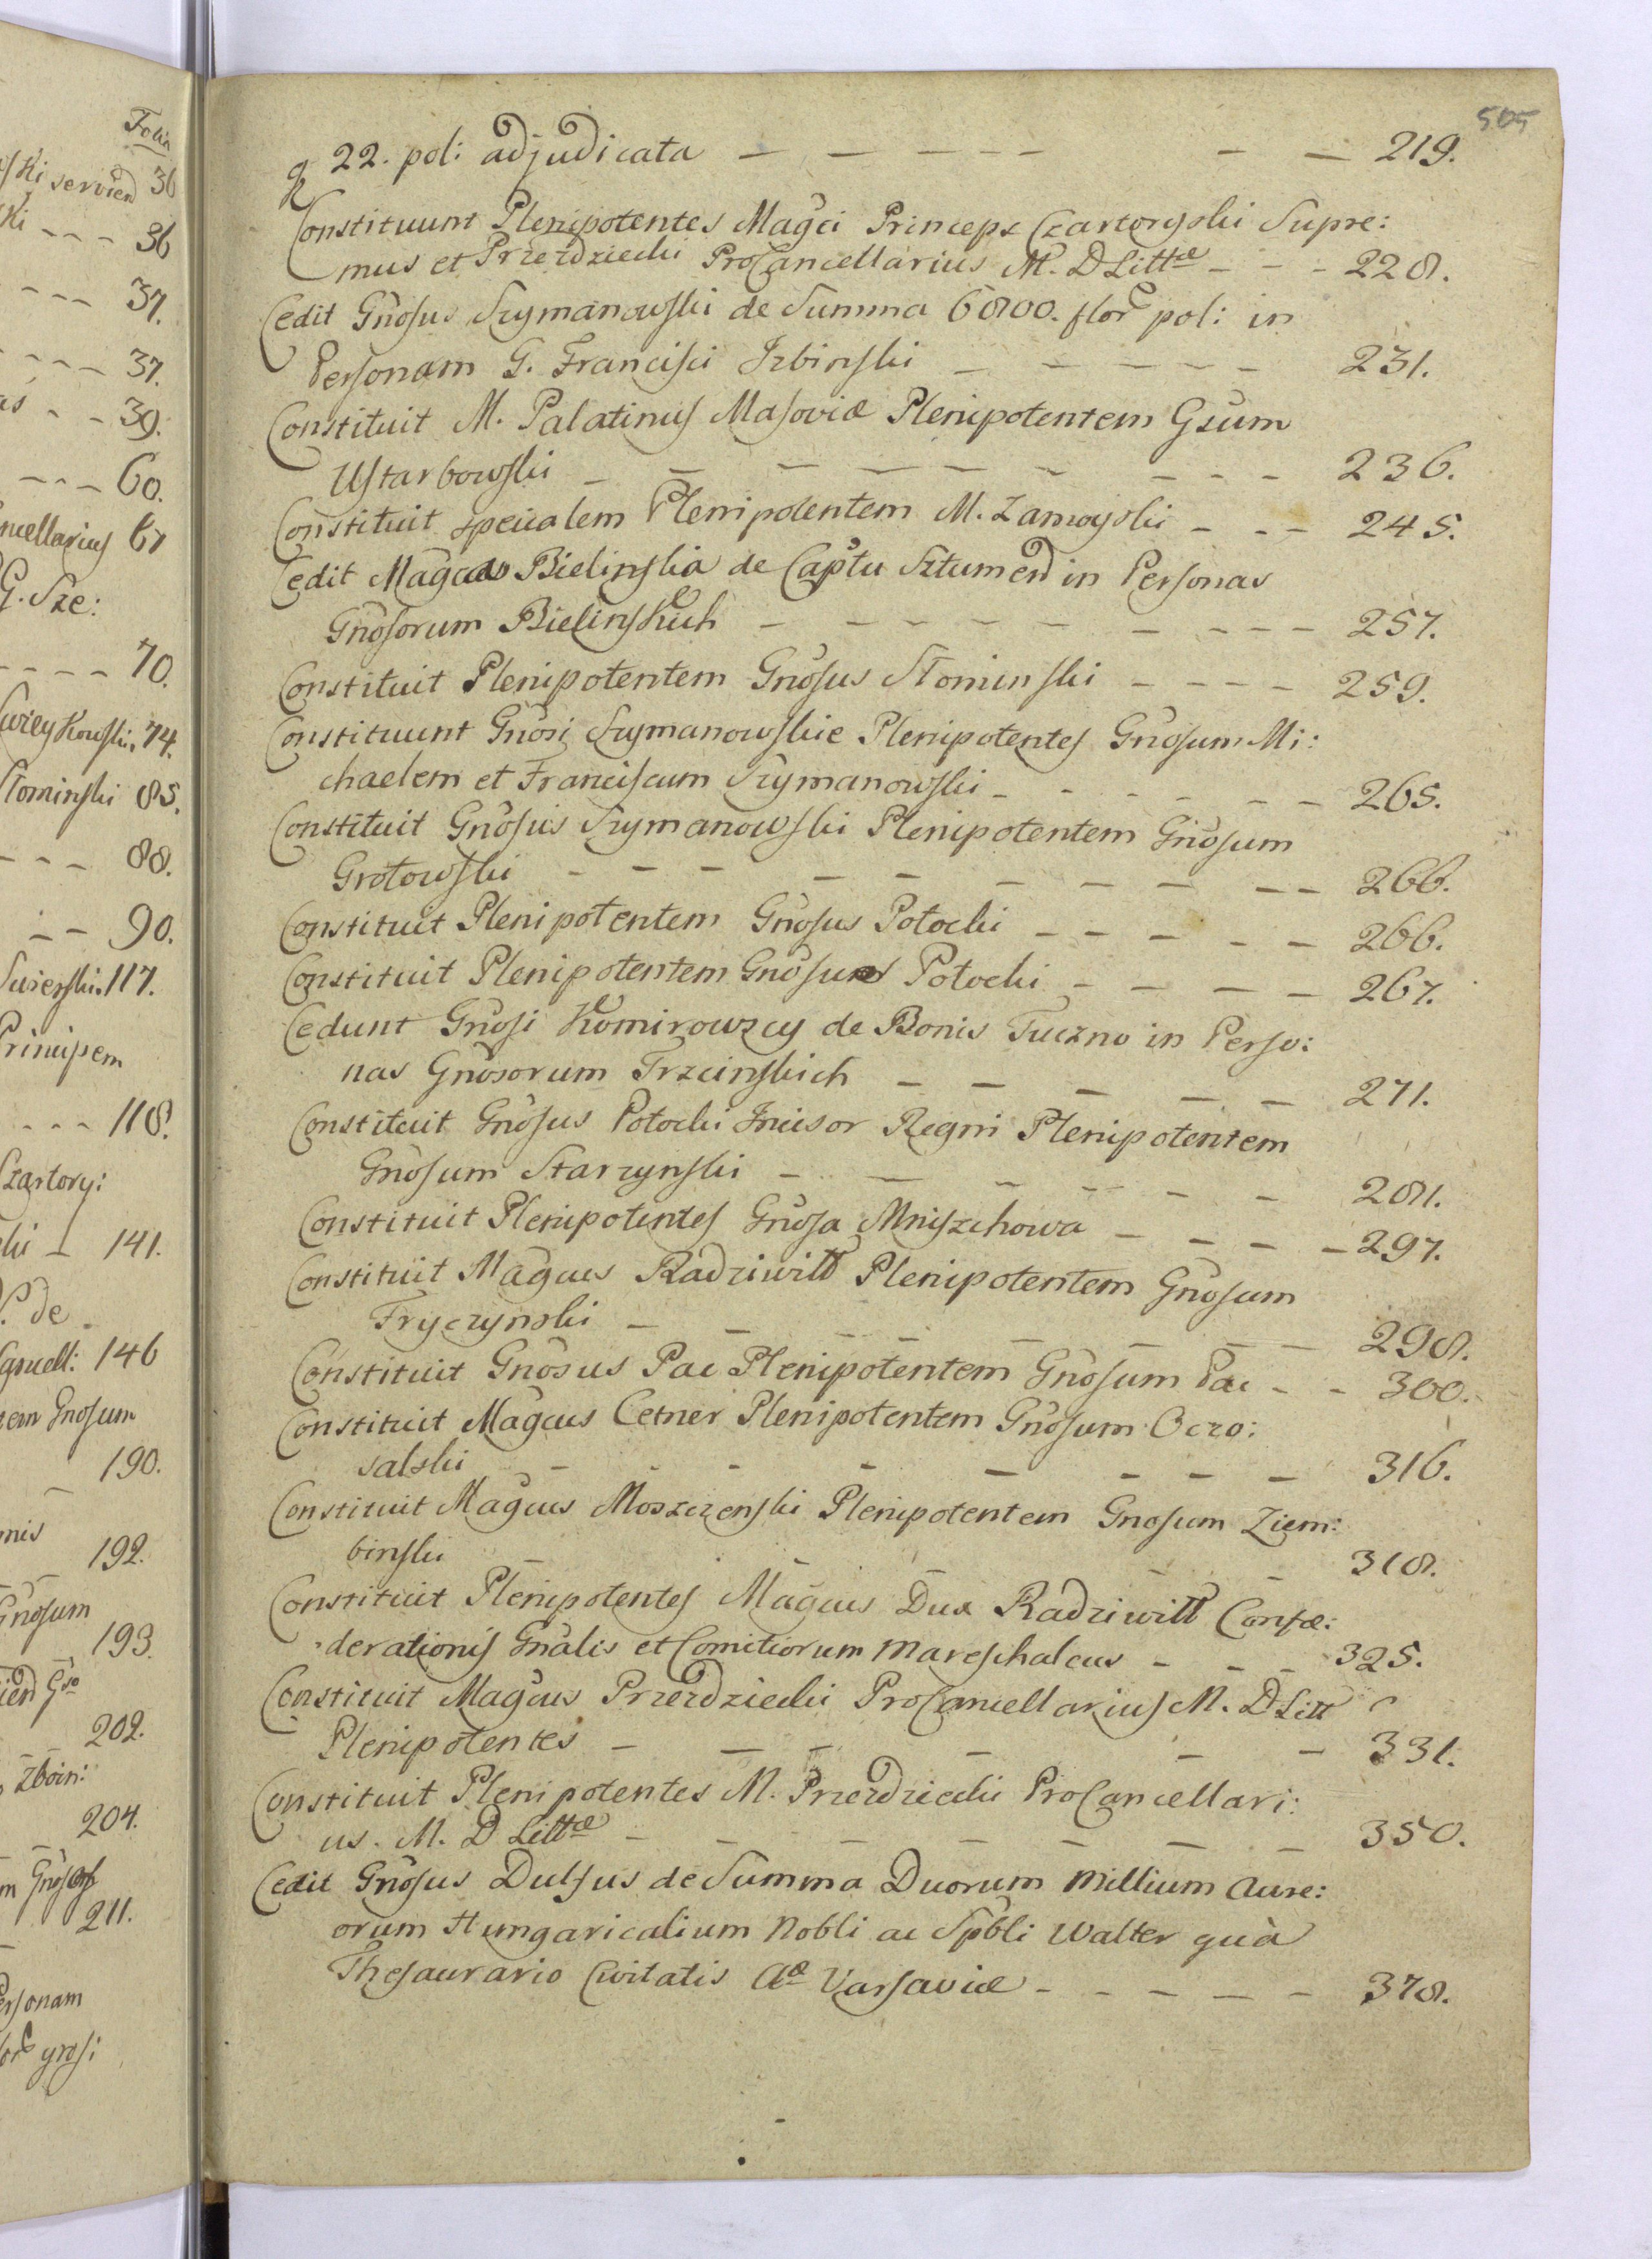 Folia
ski serviend 36
ki - - - 36
- - - 37.
- - - 37.
- - 39.
- - - 60.
ncellarius 67
G. Sze:
- - - - 70.
74.
Słominski 85.
- - - 88.
- - 90.
117.
Principem
- - - 118.
Czartory:
ski - 141.
de
Cancell: 146
tem Gnosum
190.
192.
Gnosum
193.
202.
Zboin:
204.
211.
Personam
grosi
505
g 22. pol: adjudicata - - - - - - - 219.
Constituunt Plenipotentes Magci Princeps Czartoryski Supre:
mus et Przezdziecki ProCancellarius M. D Littæ - - - 228.
Cedit Gnosus Szymanowski de Summa 6800. flor pol: in
Personam G. Francisci Izbinski - - - - - 231.
Constituit M. Palatinus Masoviæ Plenipotentem Gsum
Ustarbowski - - - - - - - - - 236.
Constituit specialem Plenipotentem M. Zamoyski - - - 245.
Cedit Magca Bielinska de Captu Sztumen in Personas
Gnosorum Bielinskich - - - - - - - - - - 257.
Constituit Plenipotentem Gnosus Słominski - - - - 259.
Constituunt Gnosi Szymanowskie Plenipotentes Gnosum Mi:
chaelem et Franciscum Szymanowski - - - - - - 265.
Constituit Gnosus Szymanowski Plenipotentem Gnosum
Grotowski - - - - - - - - - - 266.
Constituit Plenipotentem Gnosus Potocki - - - - - 266.
Constituit Plenipotentem Gnosus Potocki - - - - 267.
Cedunt Gnosi Komirowzcy de Bonis Tuczno in Perso:
nas Gnosorum Trzcinskich - - - - - 271.
Constituit Gnosus Potocki Incisor Regni Plenipotentem
Gnosum Starzynski - - - - - - 281.
Constituit Plenipotentes Gnosa Mniszchowa - - - - 297.
Constituit Magcus Radziwiłł Plenipotentem Gnosum
Fryczynski - - - - - - - - 298.
Constituit Gnosus Pac Plenipotentem Gnosum Pac - - 300.
Constituit Magcus Cetner Plenipotentem Gnosum Oczo:
salski - - - - - - - - 316.
Constituit Magcus Moszczenski Plenipotentem Gnosum Ziem:
binski - - - - - - 318.
Constituit Plenipotentes Magcus Dux Radziwiłł Confæ:
derationis Gnalis et Comitiorum Mareschalcus - - - 325.
Constituit Magcus Przezdziecki ProCancellarius M. D Litt
Plenipotentes - - - - - - 331.
Constituit Plenipotentes M. Przezdziecki ProCancellari:
us. M. D Littæ - - - - - - - - 350.
Cedit Gnosus Dulfus de Summa Duorum Millium Aure:
orum Hungaricalium Nobli ac Spbli Walter quà
Thesaurario Civitatis Aæ Varsaviæ - - - - - 378.